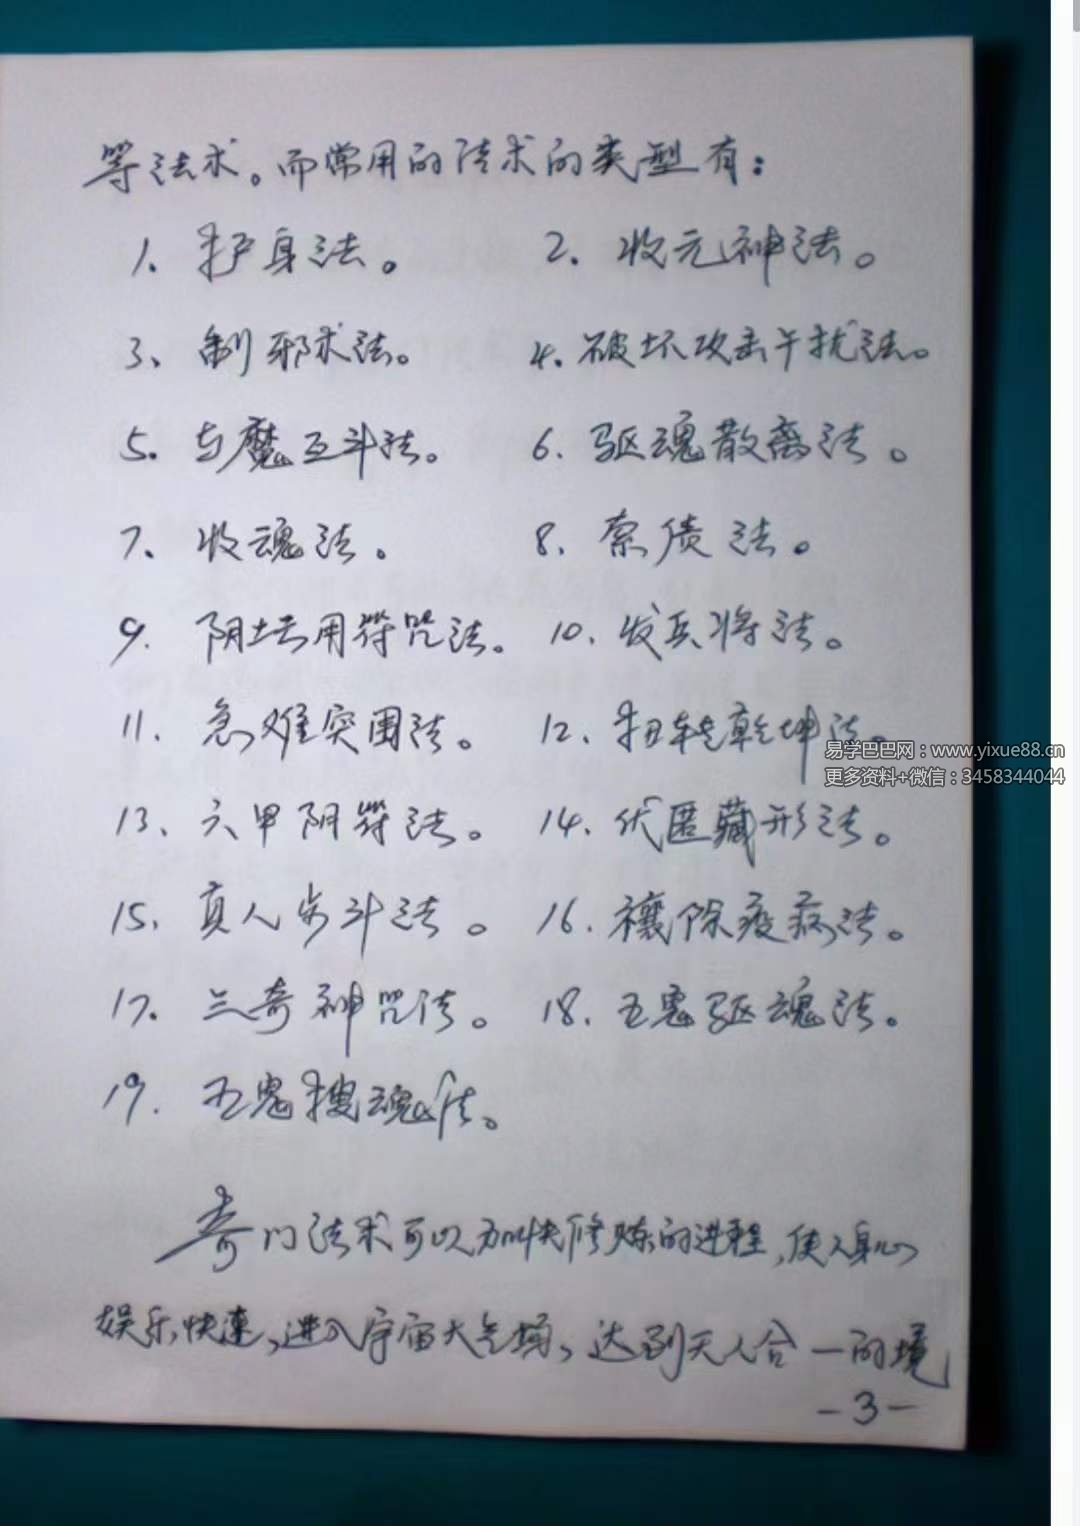 等法术。而常用的法术的类型有：
1. 护身法。 2. 收元神法。
3、制邪术法。 4. 破坏攻击干扰法。
5. 与魔互斗法。 6. 驱魂散离法。
7. 收魂法。 8. 索债法。
9. 阴坛用符咒法。 10. 发兵将法。
11. 急难突围法。 12. 扭转乾坤法。
易学巴巴网：www.yixue88.cn
更多资料+微信：3458344044
13、六甲阴符法。 14. 伏匿藏形法。
15. 真人步斗法。 16. 禳除疫病法。
17. 三奇神咒法。 18. 五鬼驱魂法。
19. 五鬼搜魂法。
奇门法术可以加快修炼的进程，使人身心
娱乐，快速，进入宇宙大气场，达到天人合一的境
-3-